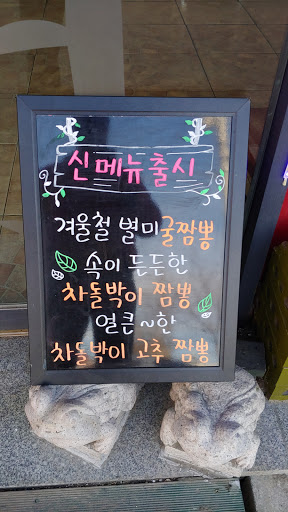 신메뉴출시
겨울철 별미굴짬뽕
속이 든든한
차돌박이 짬뽕
얼큰~한
차돌박이 고추 짬뽕